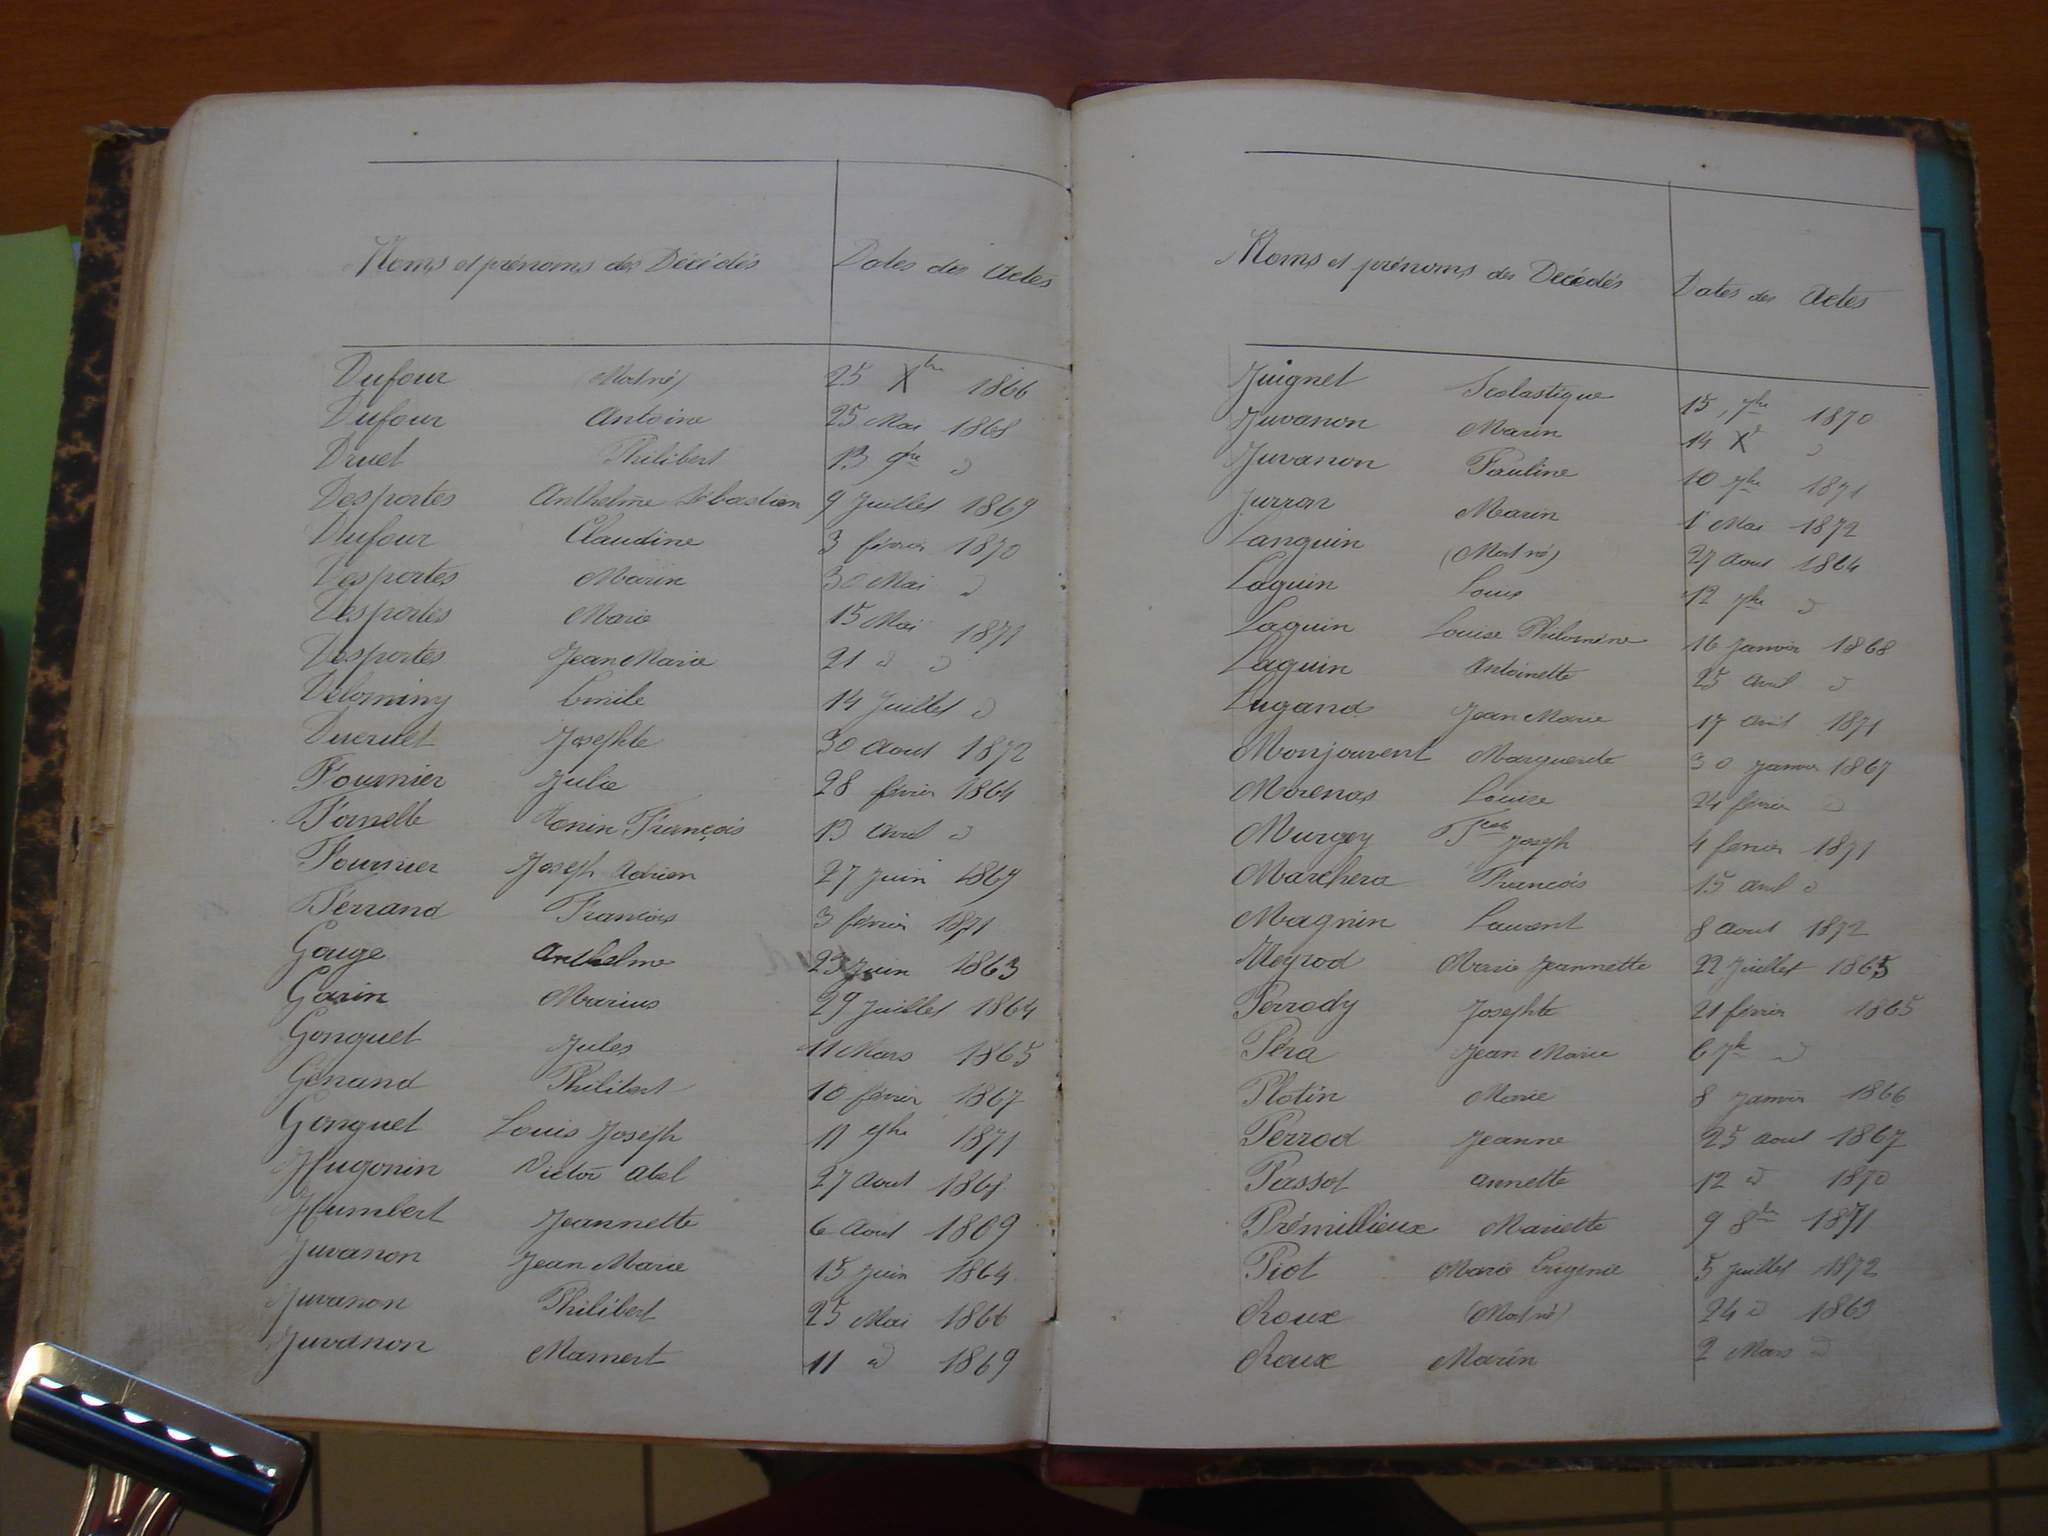 Noms et prénoms des Décédés Dates des Actes
Dufour (Mort né) 25 Xbre 1866
Dufour Antoine 25 Mai 1868
Druet Philibert 13 9bre d
Desportes Anthelme Sébastien 9 Juillet 1869
Dufour Claudine 3 février 1870
Desportes Marin 30 Mai d
Desportes Marie 15 Mai 1871
Desportes Jean Marie 21 d d
Delorminy Emile 14 Juillet d
Ducruet Josephte 30 Aout 1872
Fournier Julie 28 février 1864
Fornelle Henin François 13 Avril d
Fournier Joseph Adrien 27 Juin 1869
Ferrand François 3 février 1871
Gouge Anthelme 23 Juin 1863
Garin Marius 29 Juillet 1864
Gonguet Jules 11 Mars 1865
Génand Philibert 10 février 1867
Gonguet Louis Joseph 11 9bre 1871
Hugonin Victor Abel 27 Aout 1868
Humbert Jeannette 6 Aout 1869
Juvanon Jean Marie 15 Juin 1864
Juvanon Philibert 25 Mai 1866
Juvanon Mamert 11 d 1869
Noms et prénoms des Décédés Dates des Actes
Juignet Scolastique 15 7bre 1870
Juvanon Marin 14 Xe d
Juvanon Pauline 10 7bre 1871
Jurron Marin 1r Mai 1872
Languin (Mort né) 27 Aout 1864
Laguin Louis 12 7bre d
Laguin Louise Philomène 16 Janvier 1868
Laguin Antoinette 25 Avril d
Lugand Jean Marie 17 Avril 1871
Monjouvent Marguerite 30 Janvier 1867
Morenas Louise 24 février d
Murgey Joseph 4 fevrier 1871
Marchera François 15 Avril d
Magnin Laurent 8 Aout 1872
Meyrod Marie Jeannette 22 Juillet 1865
Perrody Josephte 21 février 1865
Péra Jean Marie 6 7bre d
Plotin Marie 8 Janvier 1866
Perrod Jeanne 25 Aout 1867
Passot Annette 12 d 1870
Prémillieux Mariette 9 8bre 1871
Piot Marie Eugénie 5 Juillet 1872
Roux (Mort né) 24 d 1863
Roux Marin 2 Mars d